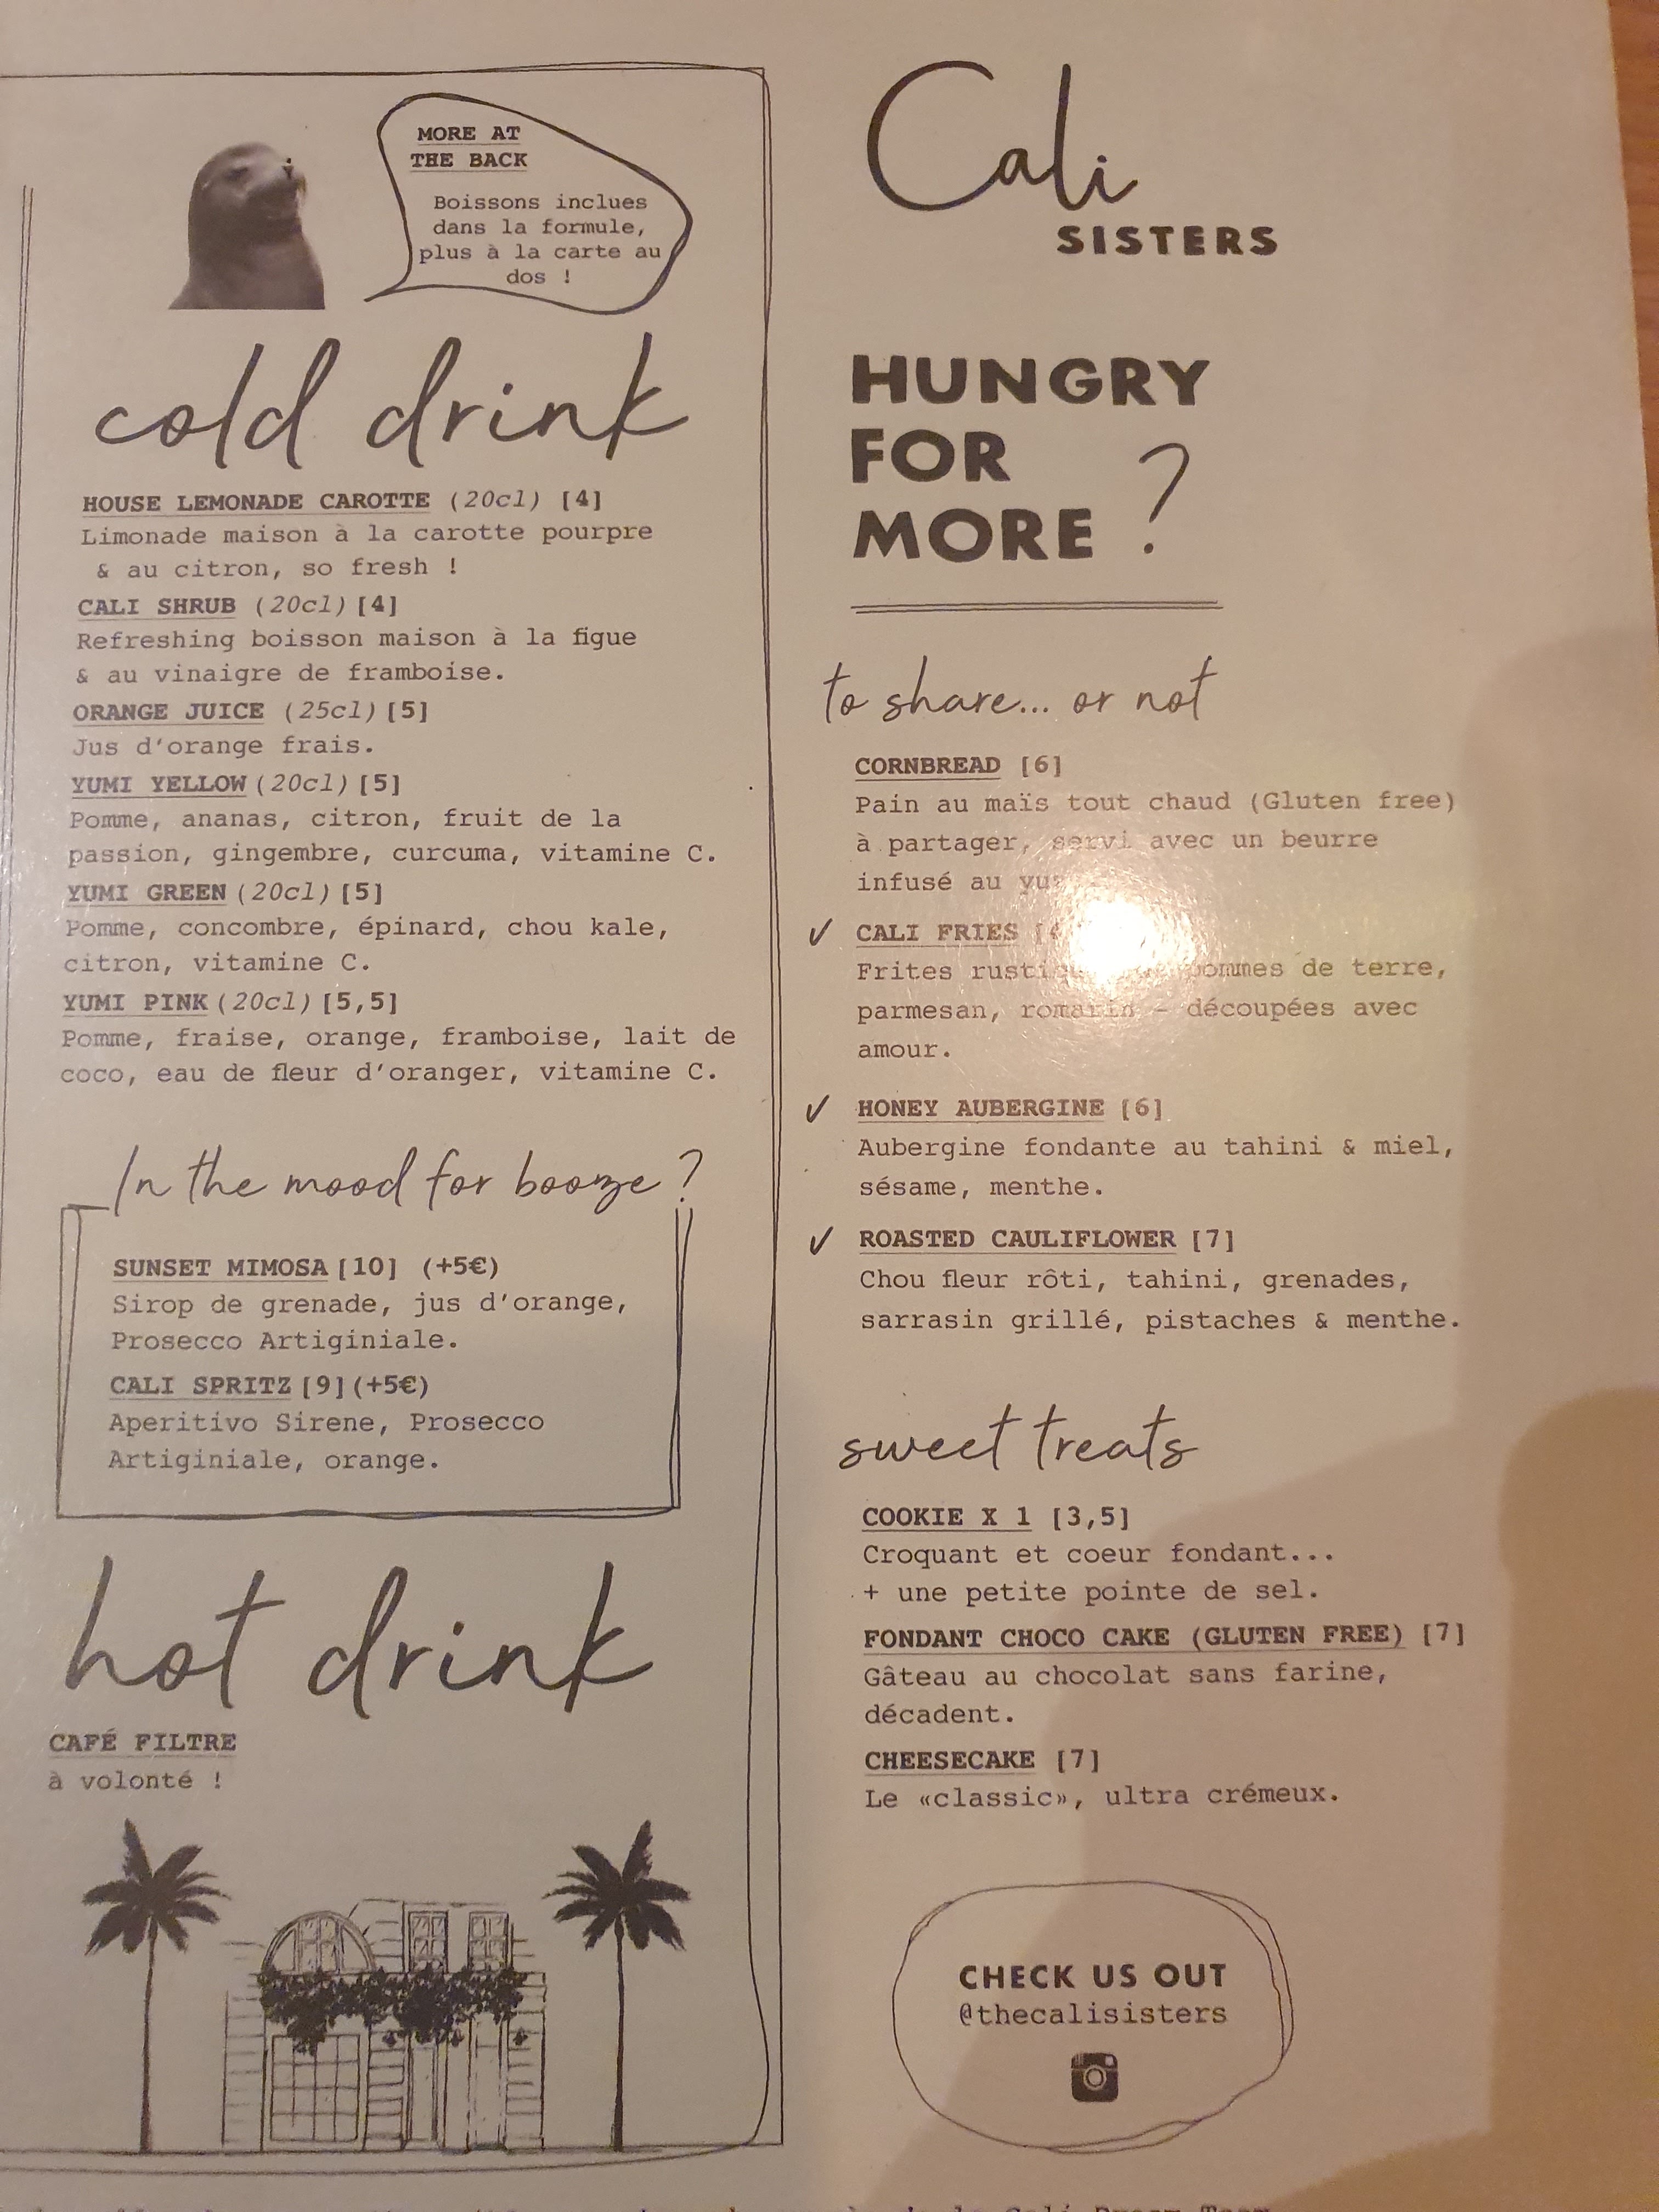 MORE AT
THE BACK
Boissons inclues
dans la formule,
plus à la carte au
dos !
cold drink
HOUSE LEMONADE CAROTTE (20cl) [4]
Limonade maison à la carotte pourpre
& au citron, so fresh !
CALI SHRUB (20cl) [4]
Refreshing boisson maison à la figue
& au vinaigre de framboise.
ORANGE JUICE (25cl) [5]
Jus d'orange frais.
YUMI YELLOW (20cl) [5]
Pomme, ananas, citron, fruit de la
passion, gingembre, curcuma, vitamine C.
YUMI GREEN (20cl) [5]
Pomme, concombre, épinard, chou kale,
citron, vitamine C.
YUMI PINK (20cl) [5,5]
Pomme, fraise, orange, framboise, lait de
coco, eau de fleur d'oranger, vitamine C.
In the mood for booze ?
SUNSET MIMOSA [10] (+5€)
Sirop de grenade, jus d'orange,
Prosecco Artiginiale.
CALI SPRITZ [9] (+5€)
Aperitivo Sirene, Prosecco
Artiginiale, orange.
hot drink
CAFÉ FILTRE
à volonté !
Cali
SISTERS
HUNGRY
FOR
MORE ?
to share... or not
CORNBREAD [6]
Pain au maïs tout chaud (Gluten free)
à partager, servi avec un beurre
infusé au
✓ CALI FRIES
Frites pommes de terre,
parmesan, romarin - découpées avec
amour.
✓ HONEY AUBERGINE [6]
Aubergine fondante au tahini & miel,
sésame, menthe.
✓ ROASTED CAULIFLOWER [7]
Chou fleur rôti, tahini, grenades,
sarrasin grillé, pistaches & menthe.
sweet treats
COOKIE X 1 [3,5]
Croquant et coeur fondant...
+ une petite pointe de sel.
FONDANT CHOCO CAKE (GLUTEN FREE) [7]
Gâteau au chocolat sans farine,
décadent.
CHEESECAKE [7]
Le «classic», ultra crémeux.
CHECK US OUT
@thecalisisters